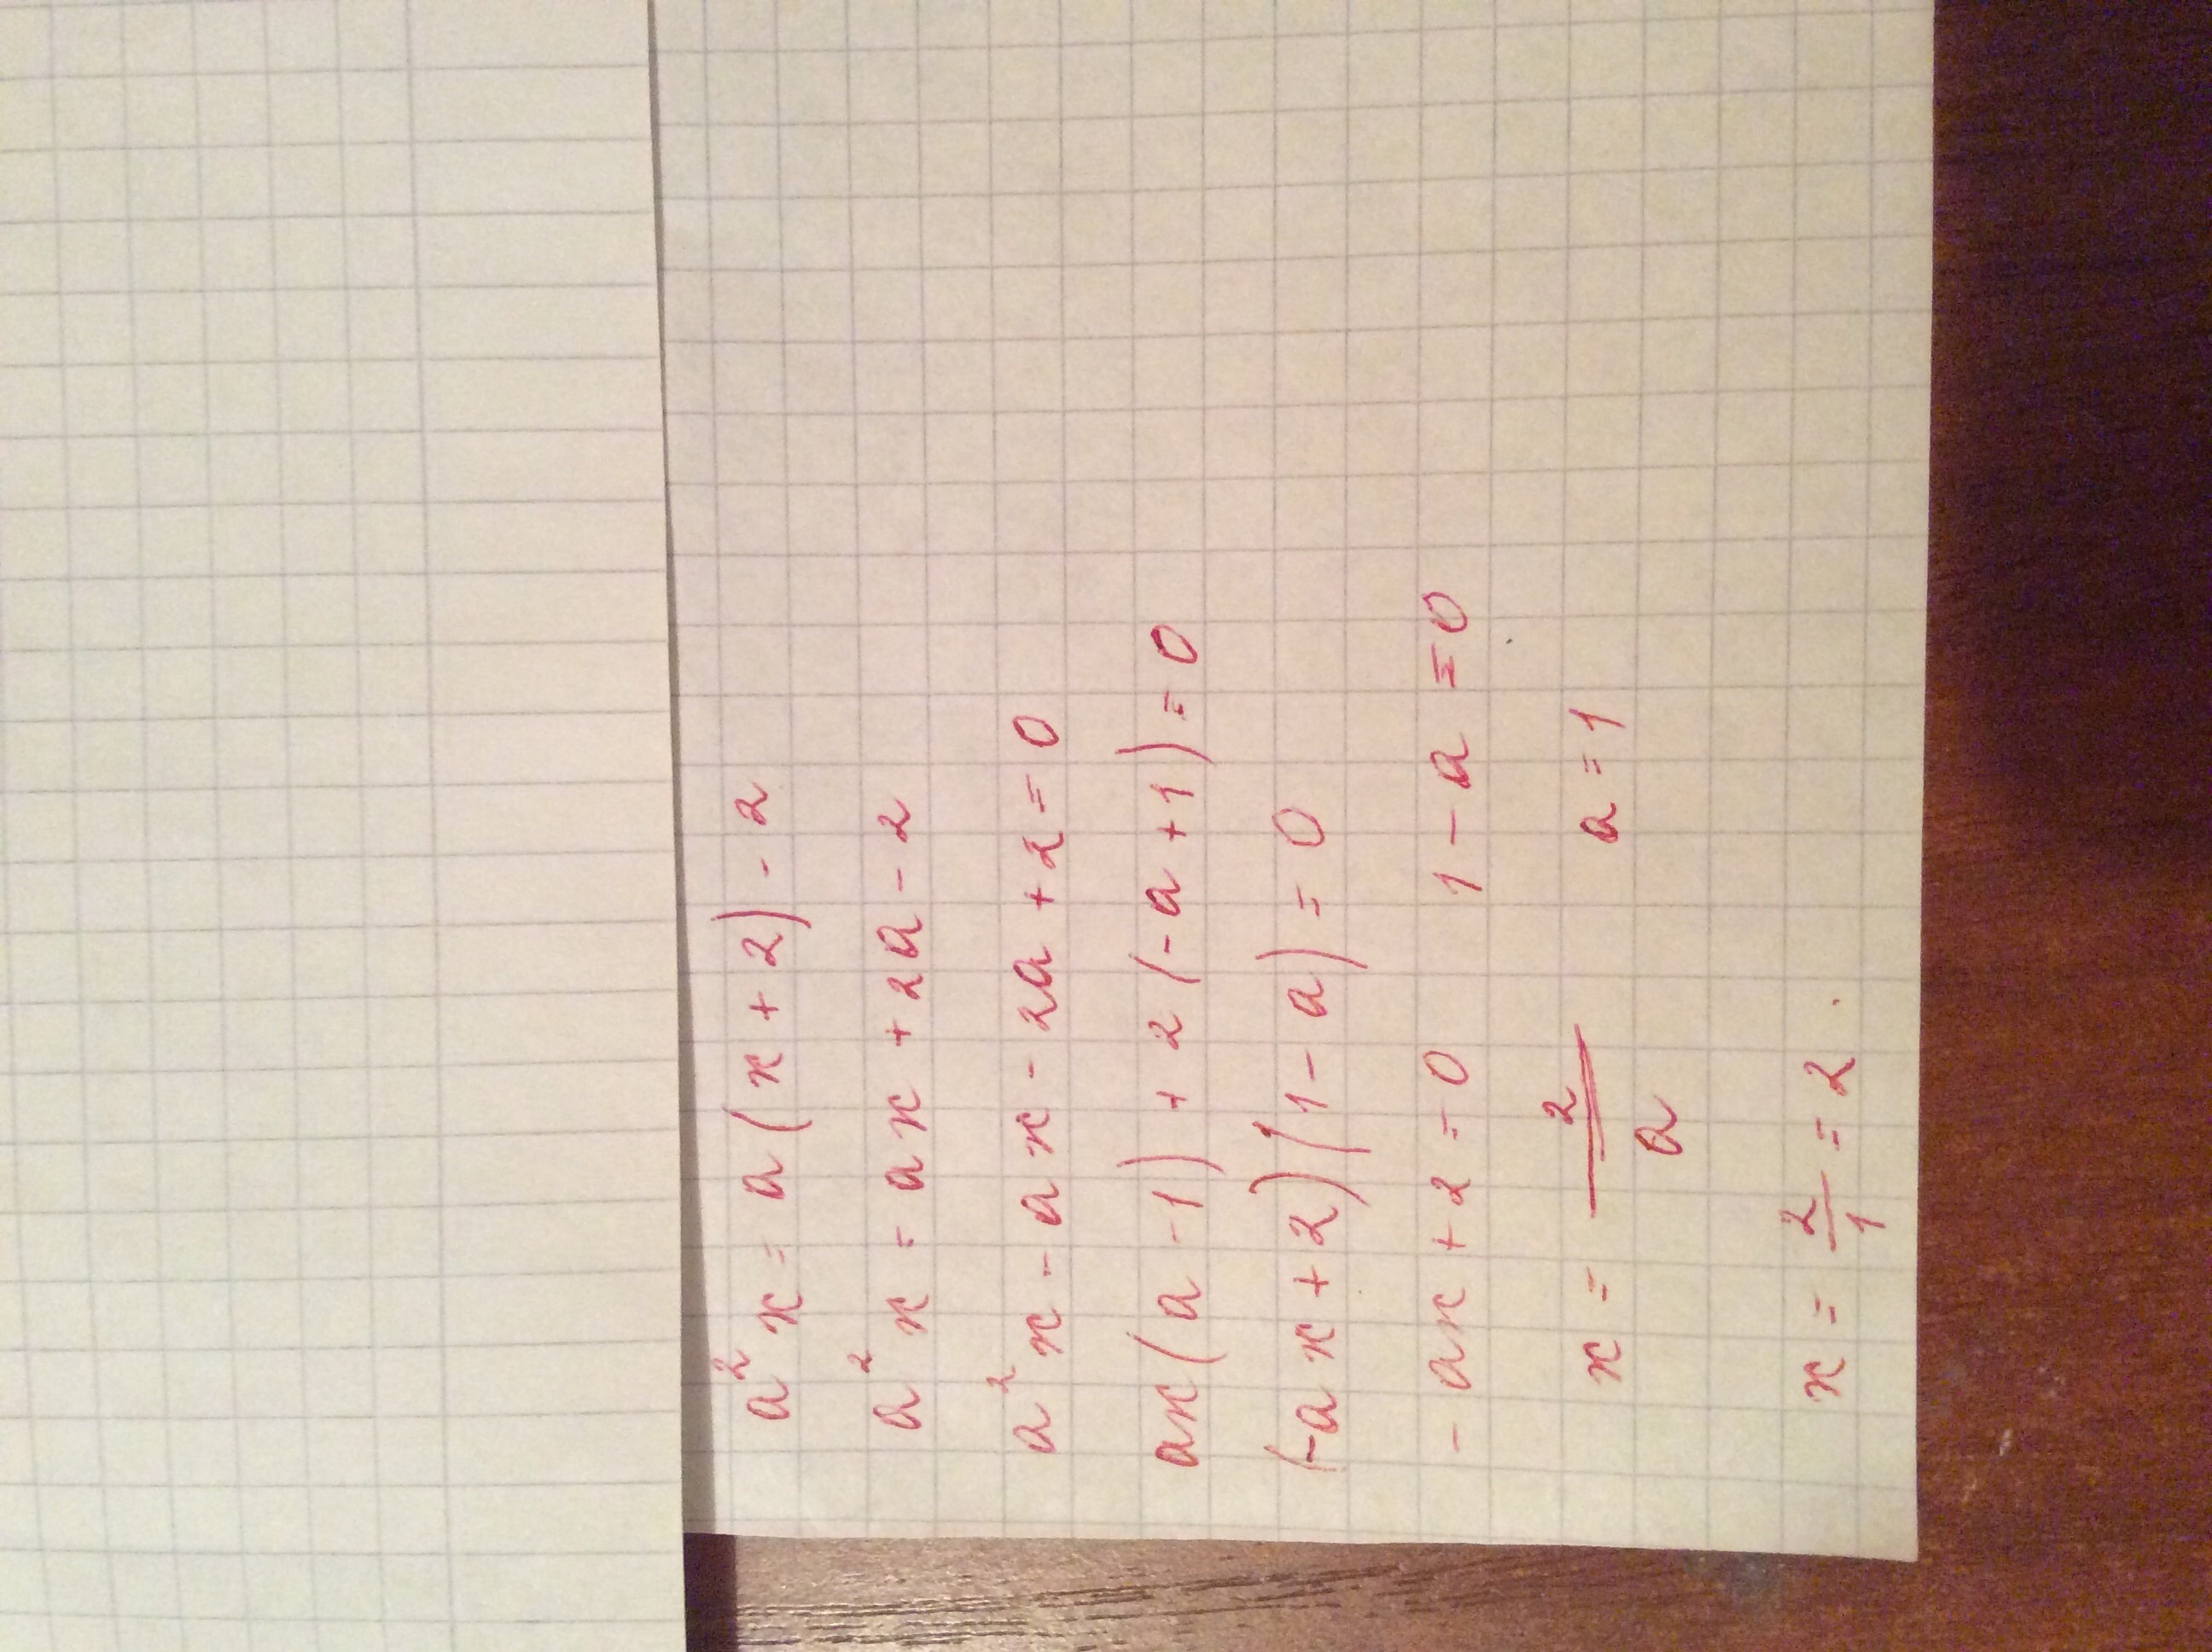 a²x = a(x+2) - 2
a²x = ax + 2a - 2
a²x - ax - 2a + 2 = 0
ax(a-1) + 2(-a+1) = 0
(-ax+2)(1-a) = 0
-ax + 2 = 0 1 - a = 0
x = 2/a a = 1
x = 2/1 = 2.